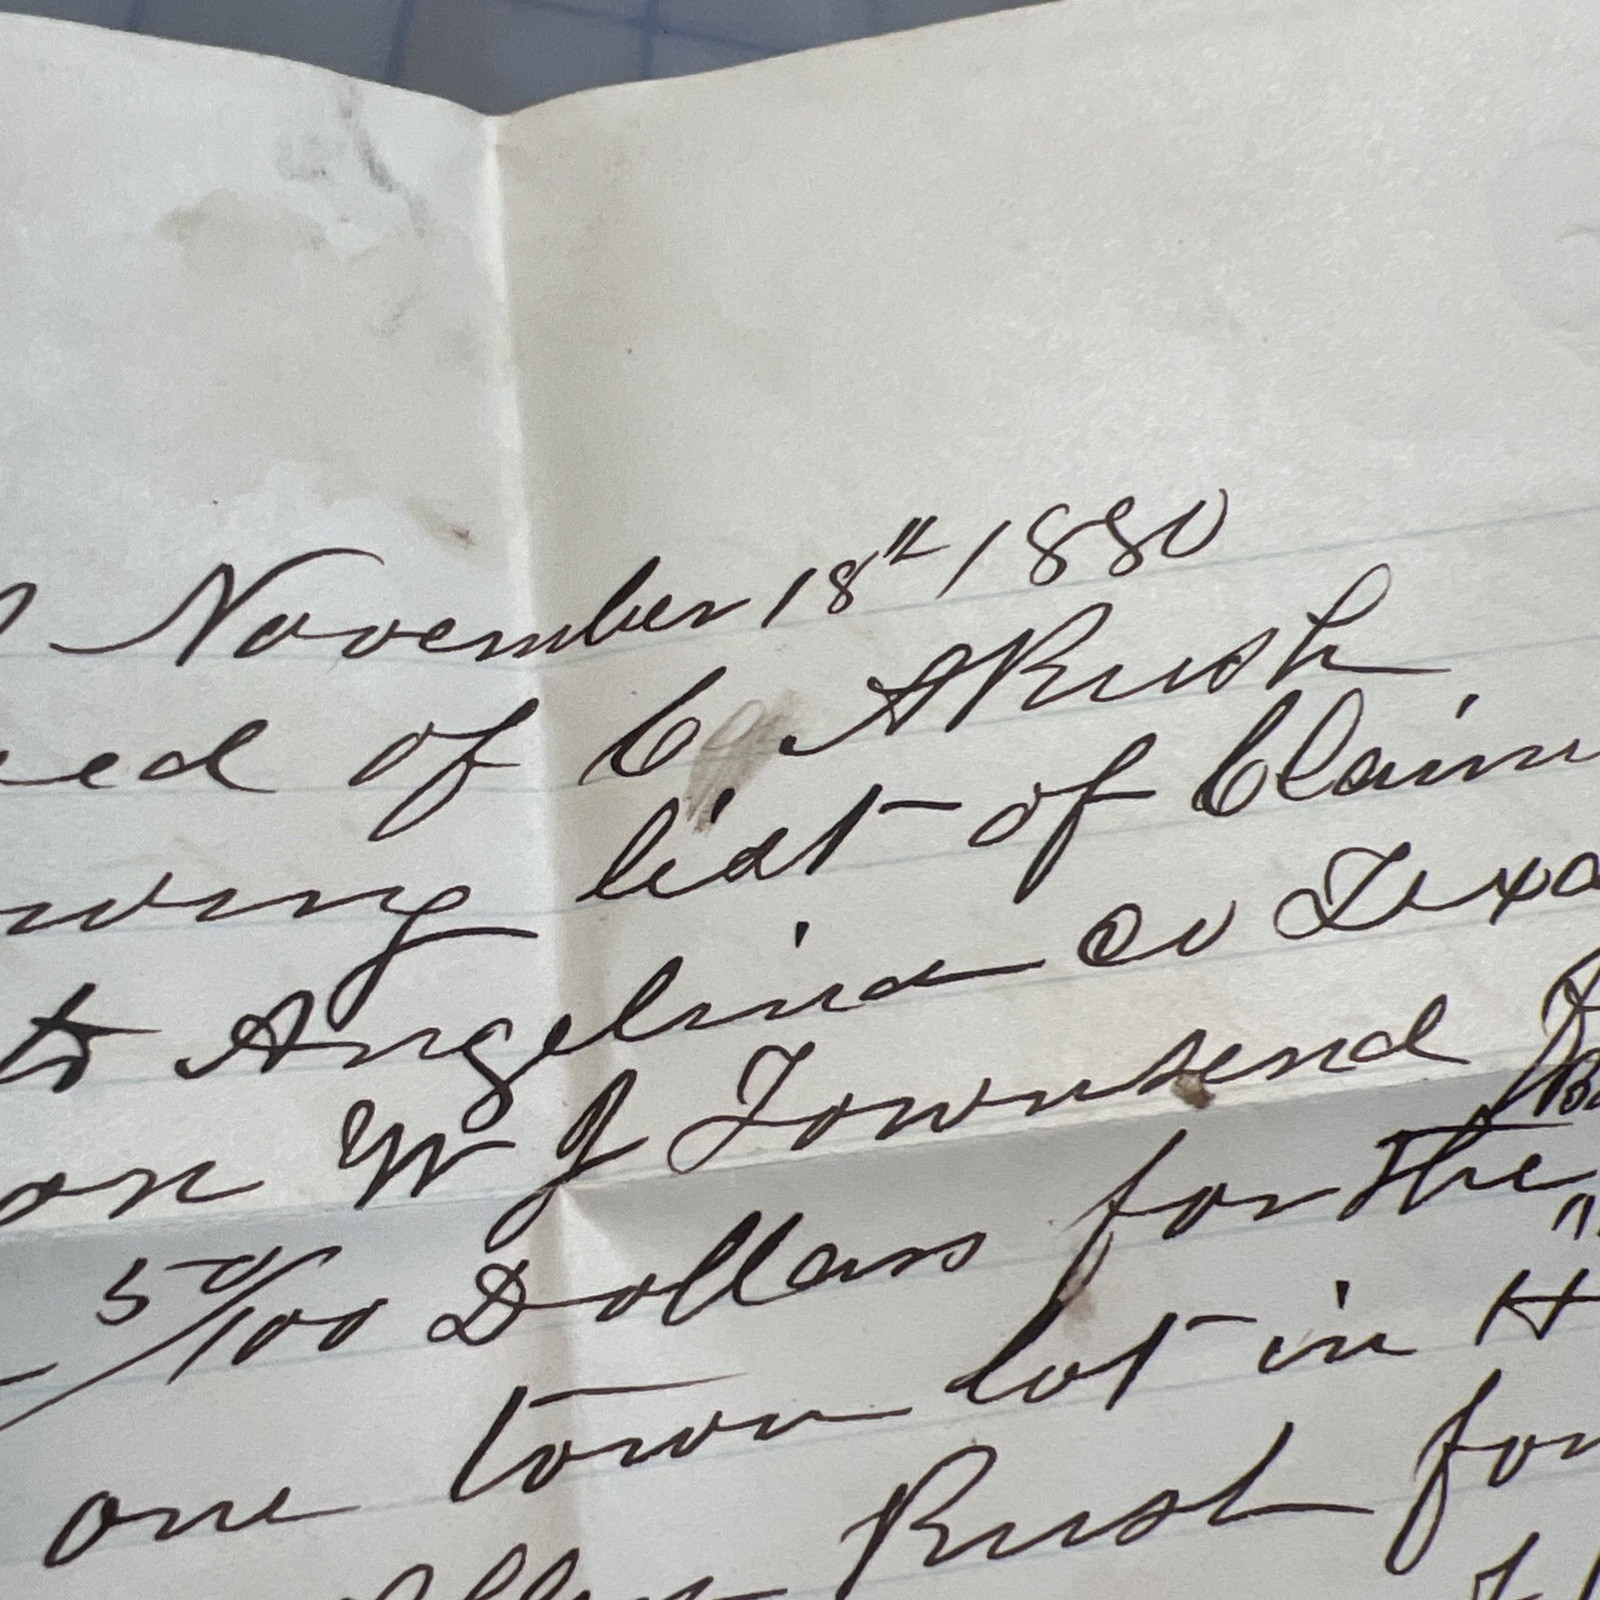 November 18th 1880
of C A Rush
list of Claim
to Angelina Co Texa
on W J Townsend
50/100 Dollars for the
one town lot in H
Rush for